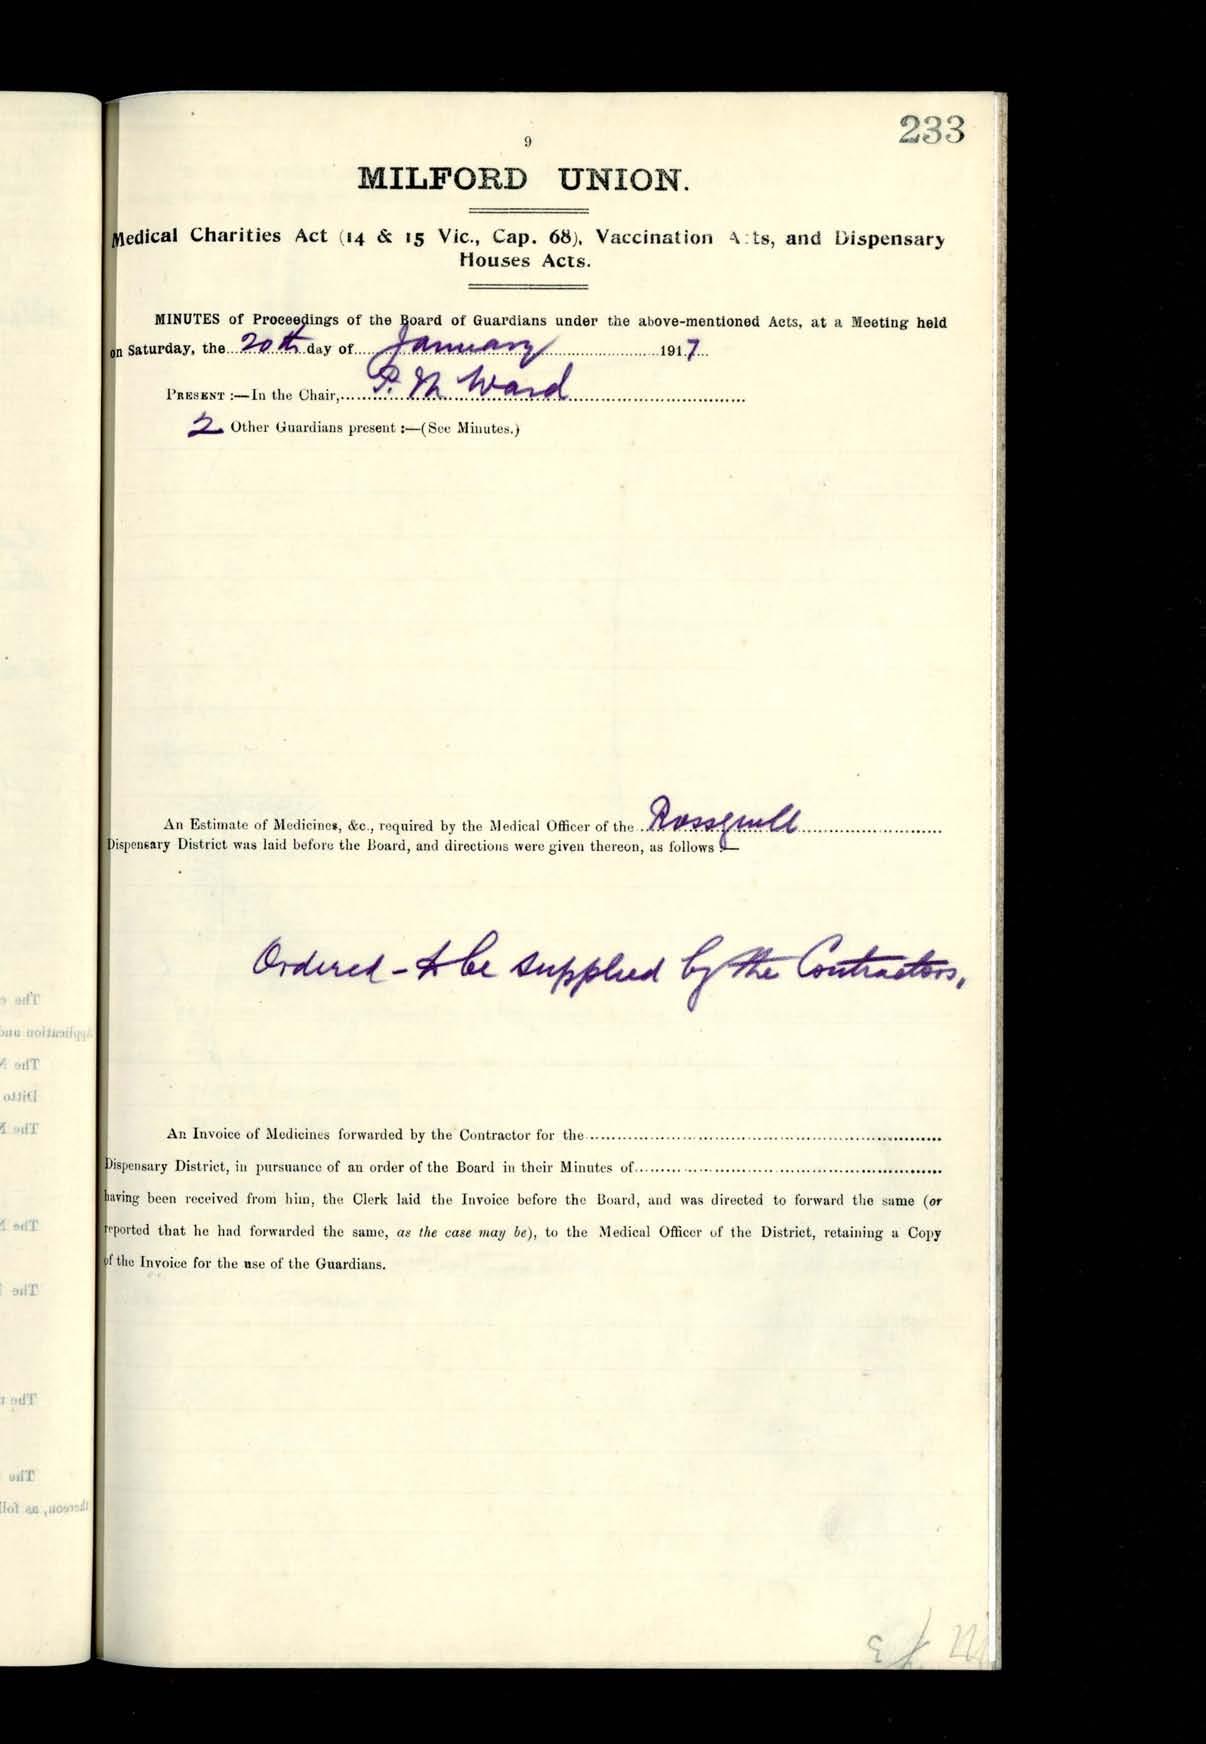 233
9
MILFORD UNION.
Medical Charities Act (14 & 15 Vic., Cap. 68), Vaccination Acts, and Dispensary
Houses Acts.
MINUTES of Proceedings of the Board of Guardians under the above-mentioned Acts, at a Meeting held
on Saturday, the 20th day of January 1917
PRESENT :—In the Chair, P. M Ward
2 Other Guardians present :—(See Minutes.)
An Estimate of Medicines, &c., required by the Medical Officer of the Rossguill
Dispensary District was laid before the Board, and directions were given thereon, as follows :—
Ordered - to be supplied by the Contractors.
An Invoice of Medicines forwarded by the Contractor for the
Dispensary District, in pursuance of an order of the Board in their Minutes of
having been received from him, the Clerk laid the Invoice before the Board, and was directed to forward the same (or
reported that he had forwarded the same, as the case may be), to the Medical Officer of the District, retaining a Copy
of the Invoice for the use of the Guardians.